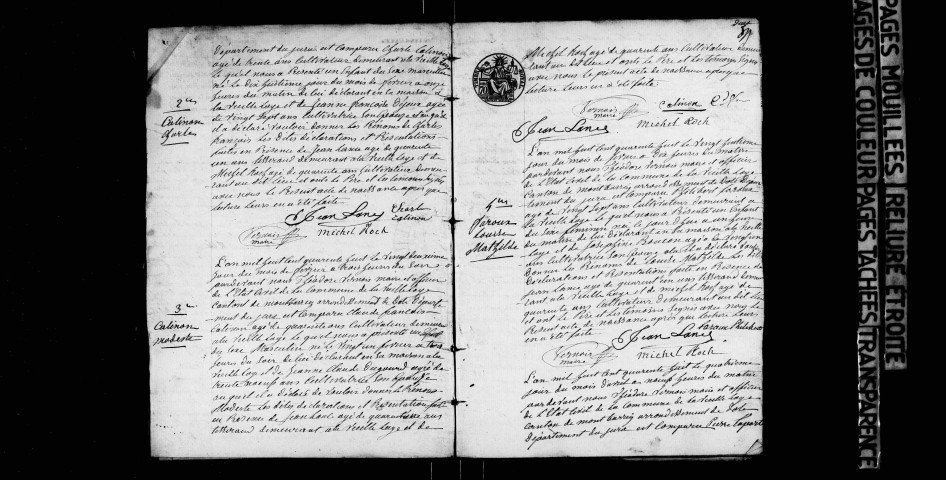 Département du jura est comparu Charle Catinon
agé de trente ans cultivateur demeurant a la Vieille Loye
le quel nous a Présenté un Enfant du sexe masculin
né le Dix huitieme jour du mois de fevrier a onze
heures du matin de lui déclarant en sa maison a
la Vieille Loye et de Jeanne françoise agée
de Vingt Sept ans cultivatrice Son Epouse et auquel
il a déclaré Vouloir donner les Prénoms de Charles
françois les Dites déclarations et Présentations
faites en Présence de Jean Lanes agé de quarante
un ans demeurant a la Vieille Loye et de
Michel Roch agé de quarante ans cultivateur demeu-
rant au dit lieu et ont le Père et les temoins signés
avec nous le Présent acte de naissance après que
lecture leur en a été faite
2me
Catinon
Charles
Jean Lanes
Charl
Catinon
Vernois
maire
Michel Roch
L'an mil huit cent quarante huit le Vingt deuxieme
jour du mois de fevrier a trois heures du Soir
pardevant nous Théodore Vernois maire et officier
de l'Etat Civil de la Commune de la Vieille Loye
Canton de montbarrey arrondissement de Dole Départe-
ment du jura est comparu Claude françois
Catinon agé de quarante ans cultivateur demeurant
a la Vieille Loye le quel nous a présenté un Enfant
du Sexe Masculin né le Vingt un fevrier a
heures du Soir de lui déclarant en sa maison a la
Vieille Loye et de Jeanne Claude agée de
trente neuf ans cultivatrice Son Epouse
au quel il a déclaré Vouloir donner le Prénom
Modeste les dites déclarations et Présentations faites
en Présence de Jean Lanes agé de quarante un ans
demeurant a la Vieille Loye et de
3me
Catinon
modeste
Michel Roch agé de quarante ans cultivateur demeu-
rant au dit lieu et ont le Père et les temoins signés
avec nous le présent acte de naissance après que
lecture leur en a été faite
Vernois
maire
Catinon
Jean Lanes
Michel Roch
L'an mil huit cent quarante huit le Vingt huitieme
jour du mois de fevrier a Dix heures du matin
pardevant nous Théodore Vernois maire et officier
de l'Etat Civil de la Commune de la Vieille Loye
Canton de montbarrey arrondissement de Dole Départe-
ment du jura est comparu Philibert Peroux
agé de Vingt Sept ans cultivateur demeurant a
la Vieille Loye le quel nous a présenté un Enfant
du Sexe feminin né le jour d'hier a
du matin de lui déclarant en sa maison a la Vieille
Loye et de Josephine agée de Vingt
ans cultivatrice Son Epouse et a la quelle il a déclaré Vouloir
Donner les Prénoms de Louise Mathilde les dites
Déclarations et Présentations faites en Présence de
Jean Lanes agé de quarante un ans demeu-
rant a la Vieille Loye et de Michel Roch agé de
quarante ans cultivateur Demeurant au dit lieu
et ont le Père et les temoins signés avec nous le
Présent acte de naissance après que lecture leur
en a été faite
4me
Peroux
Louise
Mathilde
Jean Lanes
Peroux Philibert
Vernois
maire
Michel Roch
L'an mil huit cent quarante huit le quatrieme
jour du mois d'avril a neuf heures du matin
pardevant nous Théodore Vernois maire et officier
de l'Etat Civil de la Commune de la Vieille Loye
Canton de montbarrey arrondissement de Dole
Département du jura est comparu Pierre
PAGES MOUILLEES | RELIURE ETROITE
PAGES DE COULEUR PAGES TACHES TRANSPARENCE